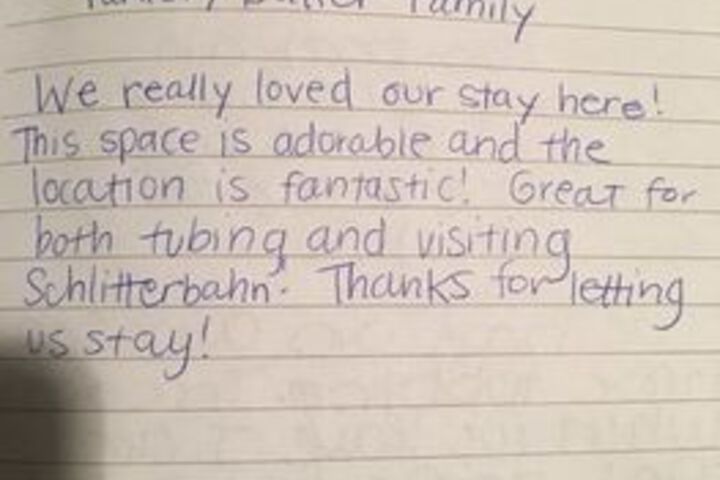 Family
We really loved our stay here!
This space is adorable and the
location is fantastic! Great for
both tubing and visiting
Schlitterbahn. Thanks for letting
us stay!